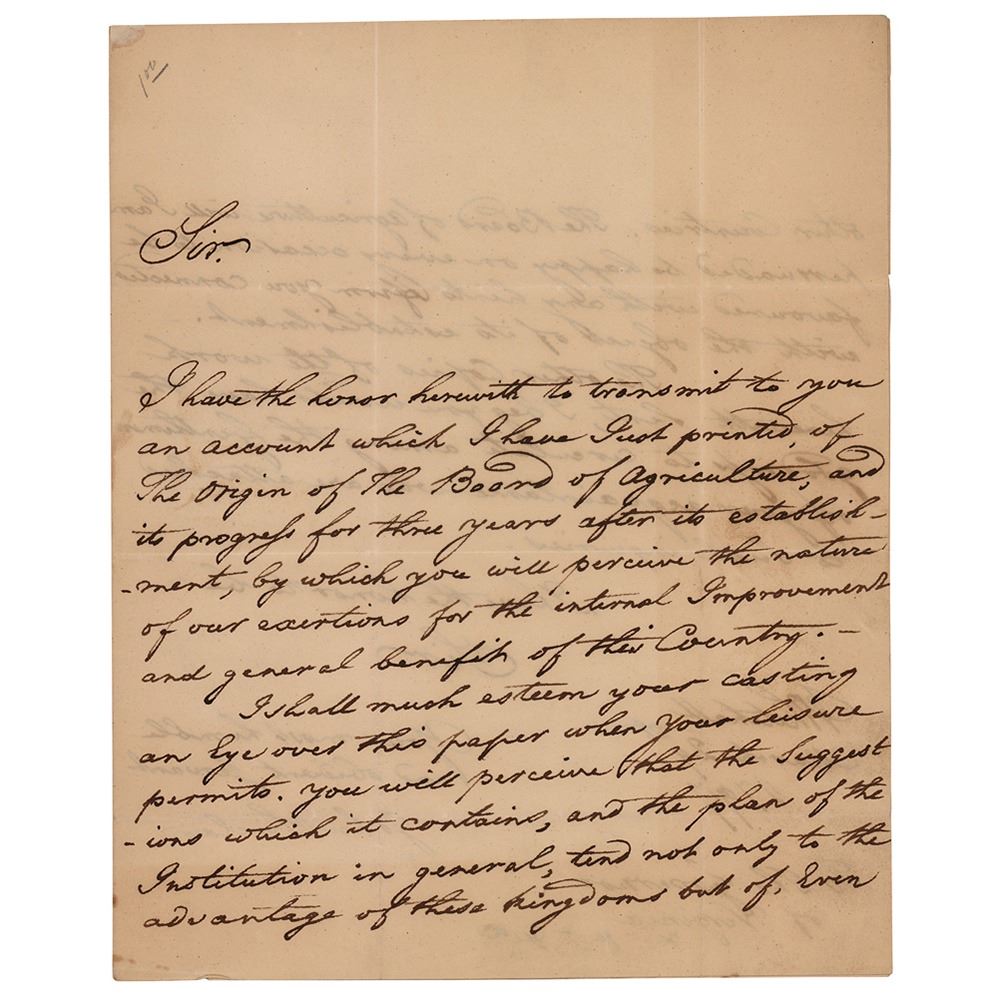 100
Sir.
I have the honor herewith to transmit to you
an account which I have Just printed, of
The Origin of The Board of Agriculture, and
its progress for three years after its establish-
-ment, by which you will perceive the nature
of our exertions for the internal Improvement
and general benefit of this Country. —
I shall much esteem your casting
an Eye over this paper when your leisure
permits. you will perceive that the Suggest
-ions which it contains, and the plan of the
Institution in general, tend not only to the
advantage of these Kingdoms but of, Even